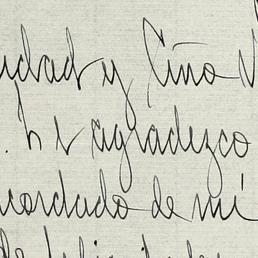 udad y fino
. Le agradezco
cordado de mí